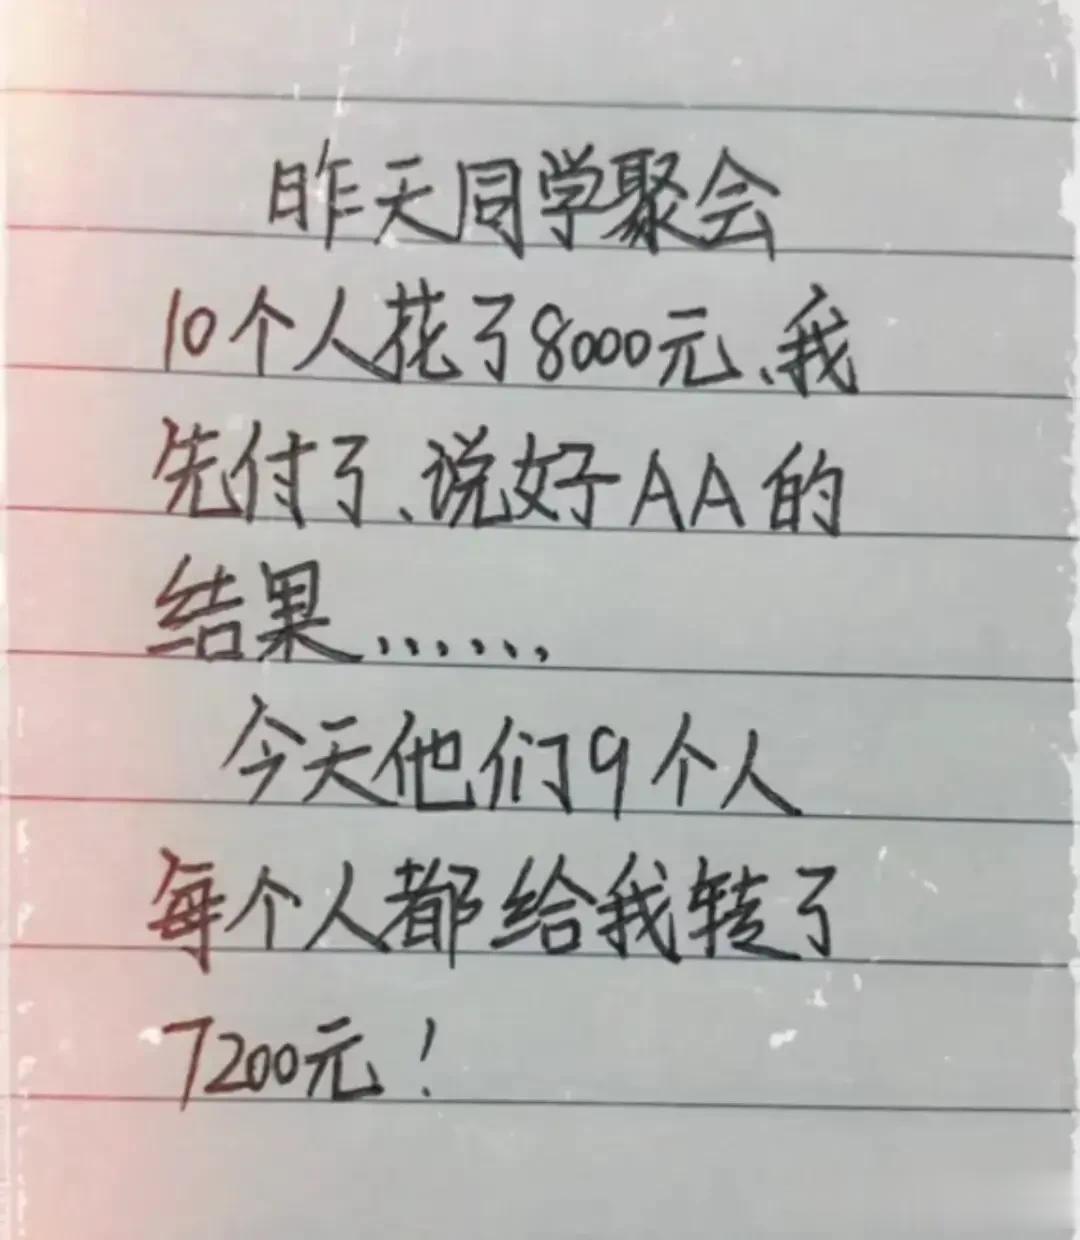 昨天同学聚会
10个人花了8000元、我
先付了、说好AA的
结果......
今天他们9个人
每个人都给我转了
7200元！